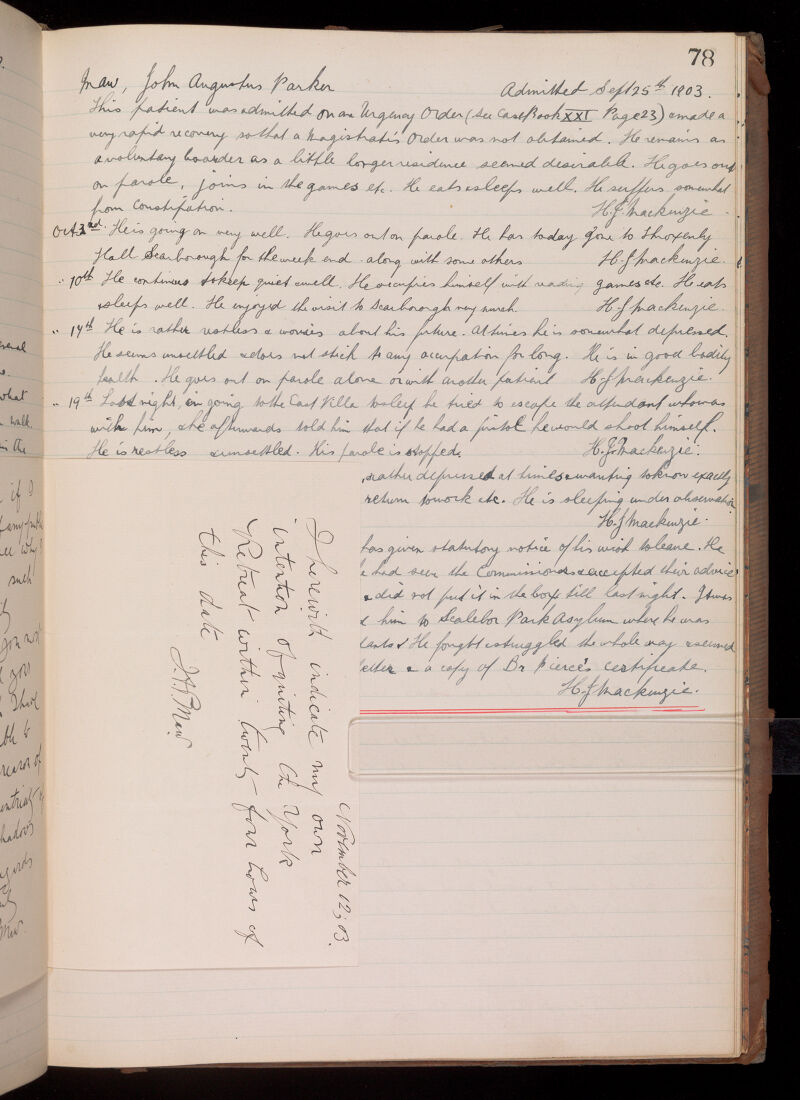 78
Maw, John Augustus Parker Admitted Sept 25th 1903.
This patient was admitted on an Urgency Order (see Case Book XXI Page 23) & made a
very rapid recovery so that a Magistrate's Order was not obtained. He remains as
a voluntary boarder as a little longer residence seemed desirable. He goes out
on parole, joins in the games etc. He eats & sleeps well. He suffers somewhat
from Constipation. H. J. Mackenzie.
Oct 3rd. He is going on very well. He goes out on parole. He has today gone to Throxenby
Hall Scarborough for the week end along with some others H. J. Mackenzie.
" 10th He continues to keep quiet & well. He occupies himself with reading games etc. He eats
& sleeps well. He enjoyed the visit to Scarborough very much H. J. Mackenzie.
" 14th He is rather restless & worries about his future. At times he is somewhat depressed.
He seems unsettled & does not stick to any occupation for long. He is in good bodily
health. He goes out on parole alone or with another patient H. J. Mackenzie.
" 19th Last night, on going to the East Villa to sleep he tried to escape the attendant who was
with him, & he afterwards told him that if he had a pistol he would shoot himself.
He is restless & unsettled. His parole is stopped. H. J. Mackenzie.
rather depressed at times & wanting to know exactly
return to work etc. He is sleeping under observation
H. J. Mackenzie.
has given statutory notice of his wish to leave. He
had seen the Commissioners & accepted their advice
& did not put it in the box till last night.
him to Scalebor Park Asylum where he was
He fought & struggled the whole way & seemed
letter & a copy of Dr Pierce's certificate.
H. J. Mackenzie.
November 12; 03.
I herewith indicate my own
intention of quitting The York
Retreat within twenty-four hours of
this date
J. A. P. Maw